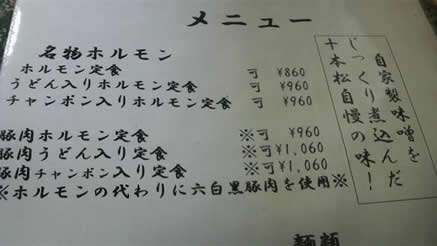 メニュー
自家製味噌を
じっくり煮込んだ
十本松自慢の味!
名物ホルモン
ホルモン定食 可 ¥860
うどん入りホルモン定食 可 ¥960
チャンポン入りホルモン定食 可 ¥960
豚肉ホルモン定食 ※可 ¥960
豚肉うどん入り定食 ※可 ¥1,060
豚肉チャンポン入り定食 ※可 ¥1,060
※ホルモンの代わりに六白黒豚肉を使用※